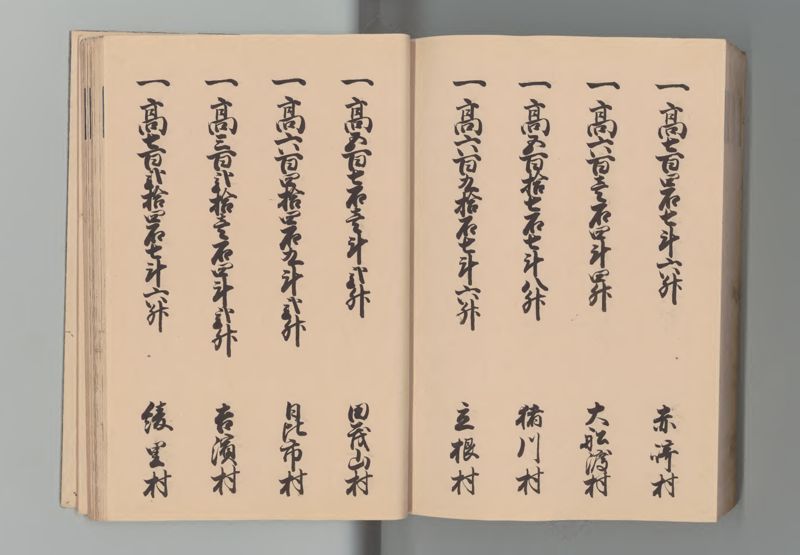 一 高七百四石七斗六升 赤崎村
一 高六百壱石四斗四升 大舩渡村
一 高五百拾七石七斗八升 猪川村
一 高六百九拾石七斗六升 立根村
一 高五百七石壱斗弐升 田茂山村
一 高六百四拾四石九斗弐升 日比市村
一 高三百弐拾壱石四斗弐升 吉濱村
一 高七百弐拾四石七斗六升 綾里村